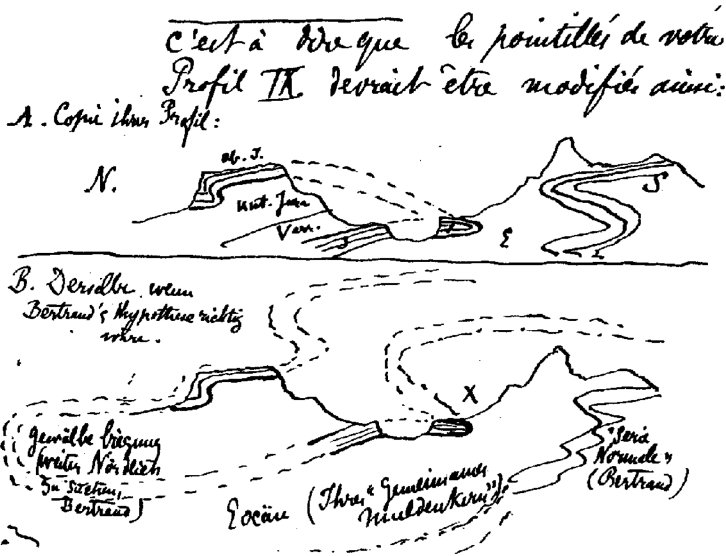 c'est à dire que les pointillés de votre
Profil IX devrait être modifiés ainsi:
A. Copie ihres Profil:
N.
ob. J.
Unt. Jura
Verr.
J
E
S
B. Derselbe wenn
Bertrand's Hypothese richtig
wäre.
X
Gewölbe biegung
(weiter Nördlich
zu suchen,
Bertrand)
Eocän (Ihres "Gemeinsamer
Muldenkern")
"Serie
Normale"
(Bertrand)